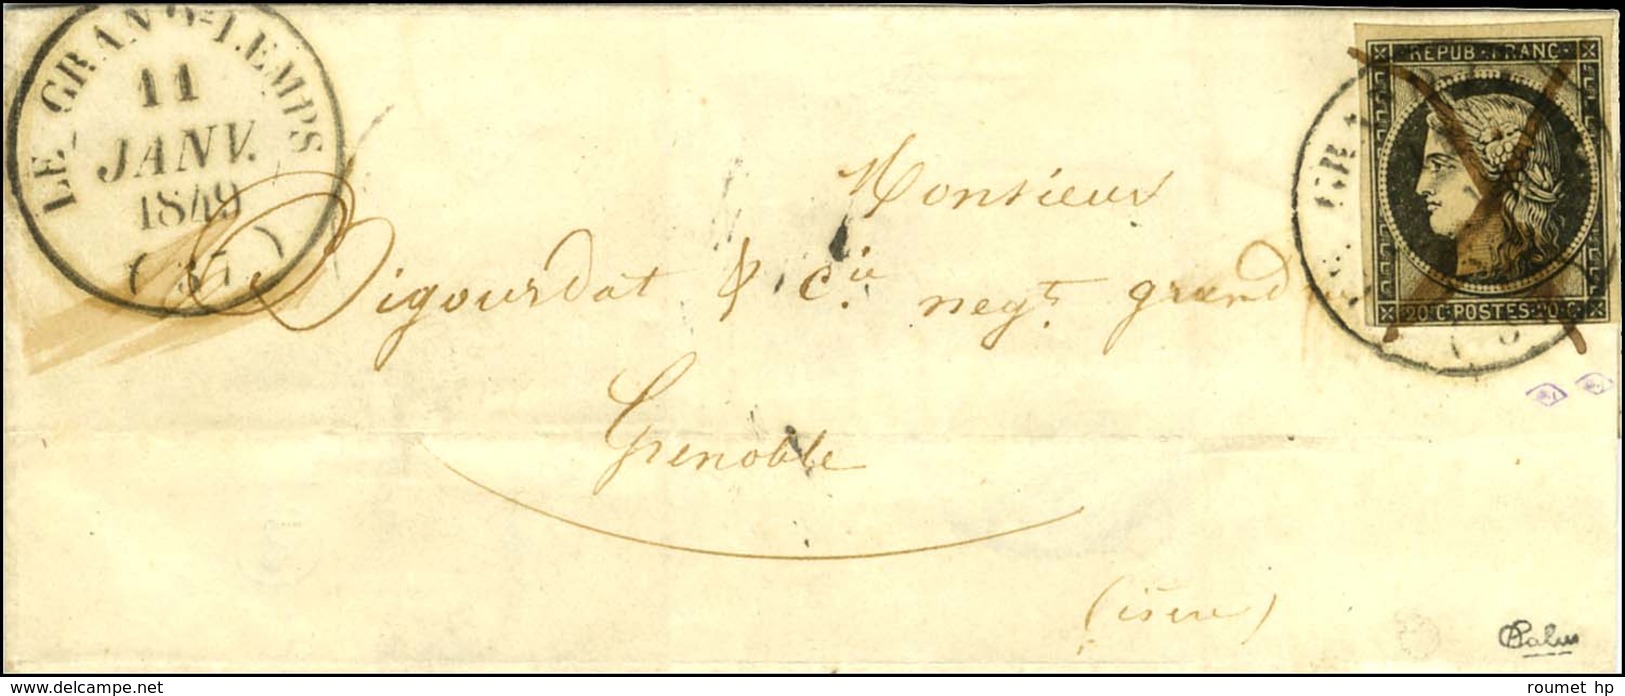 LE GRAND-LEMPS
11
JANV.
1849
(37)
REPUB. FRANC.
20 C. POSTES 20 C.
GRA
Monsieur
Bigourdat & Cie. negt. grand
Grenoble
(isère)
Calves
www.delcampe.net
roumet hp